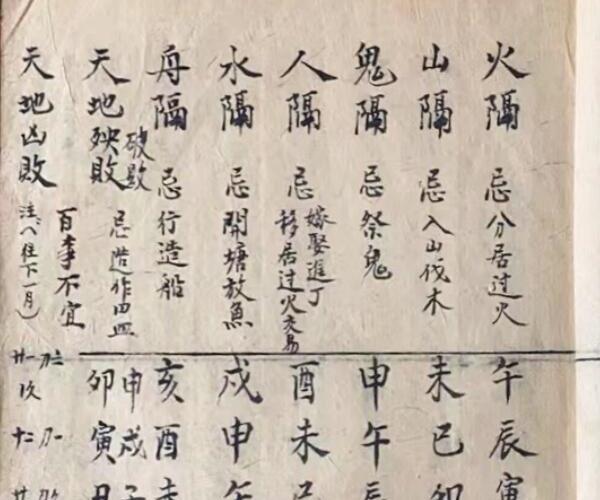 火隔 忌分居过火 午辰寅
山隔 忌入山伐木 未巳卯
鬼隔 忌祭鬼 申午辰
人隔 忌嫁娶進丁移居过火交易 酉未巳
水隔 忌開塘放魚 戌申午
舟隔 忌行造船 亥酉未
天地殃敗 破歇 忌造作田皿 申戌子
卯寅丑
天地凶敗 百事不宜
注:(往下一月)